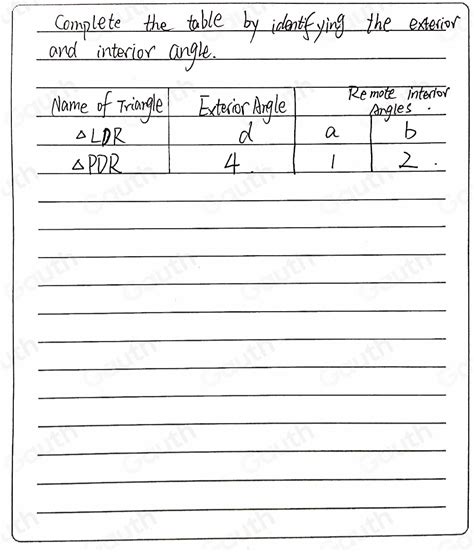 Complete the table by identifying the exterior
and interior angle.
Name of Triangle Exterior Angle Remote Interior Angles.
△LDR d a b
△PDR 4. 1 2.
Gauth